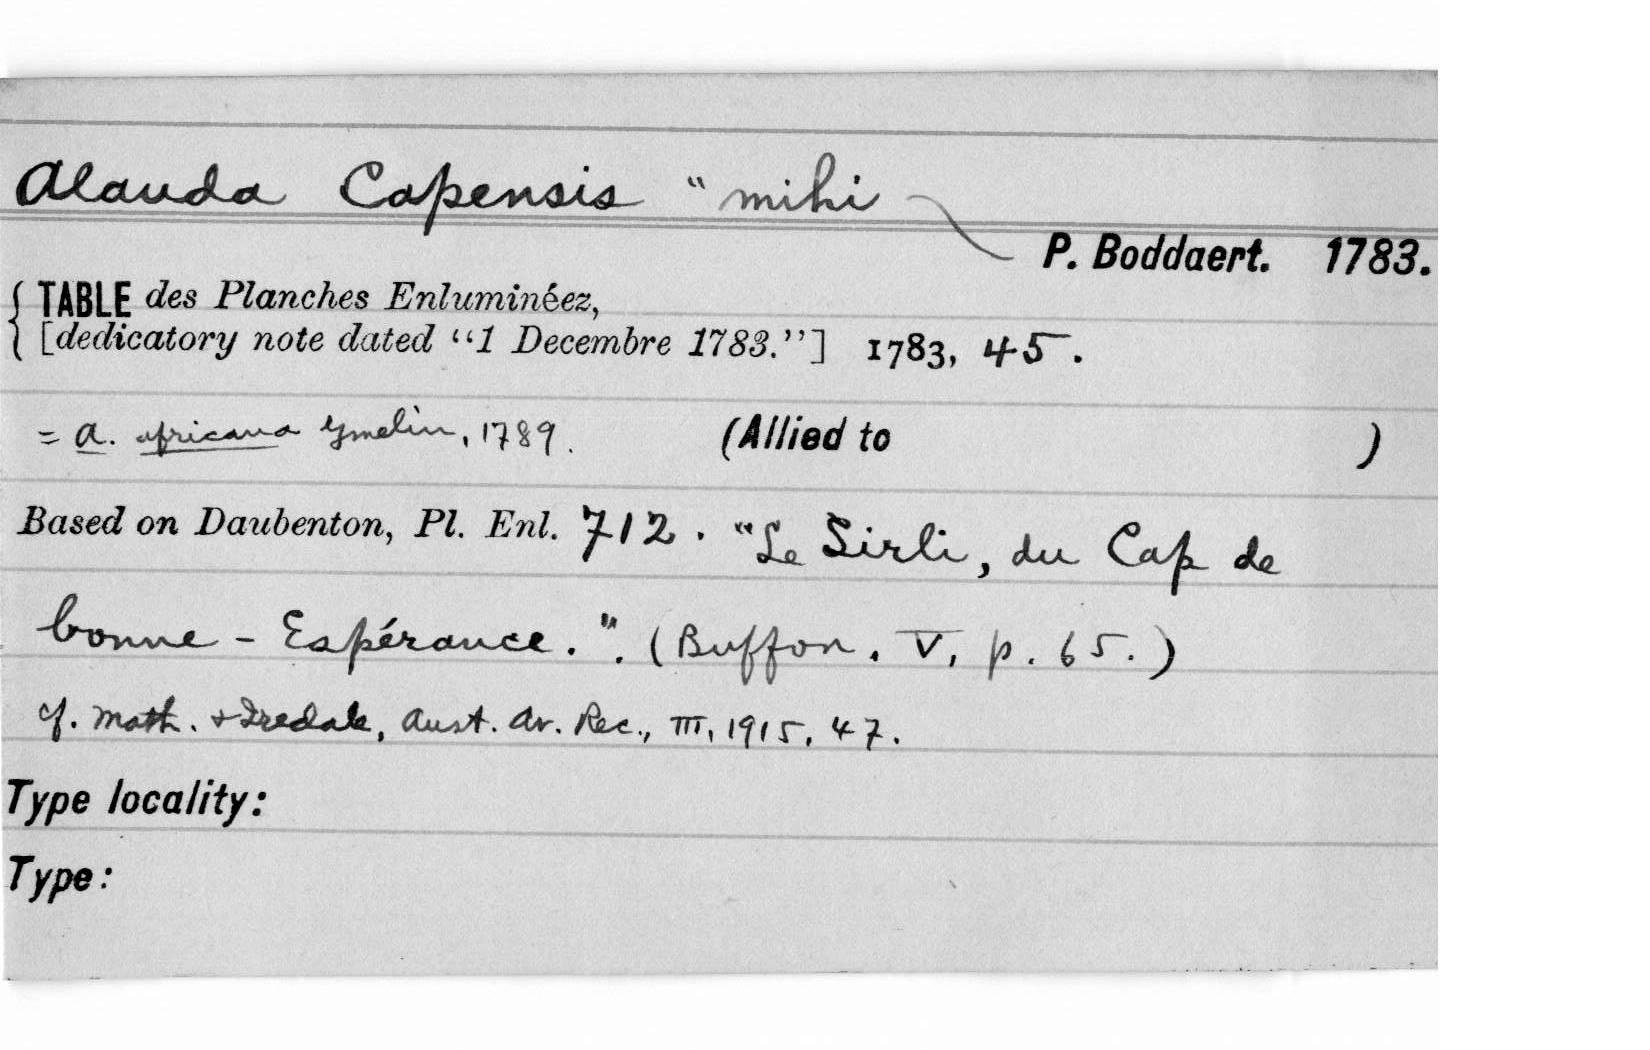 Alauda Capensis "mihi
P. Boddaert. 1783.
TABLE des Planches Enluminéez,
[dedicatory note dated "1 Decembre 1783."] 1783, 45.
= A. africana Gmelin, 1789. (Allied to )
Based on Daubenton, Pl. Enl. 712. "Le Sirli, du Cap de
bonne - Espérance.". (Buffon. V, p. 65.)
cf. Math. & Iredale, Aust. Av. Rec., III, 1915, 47.
Type locality:
Type: